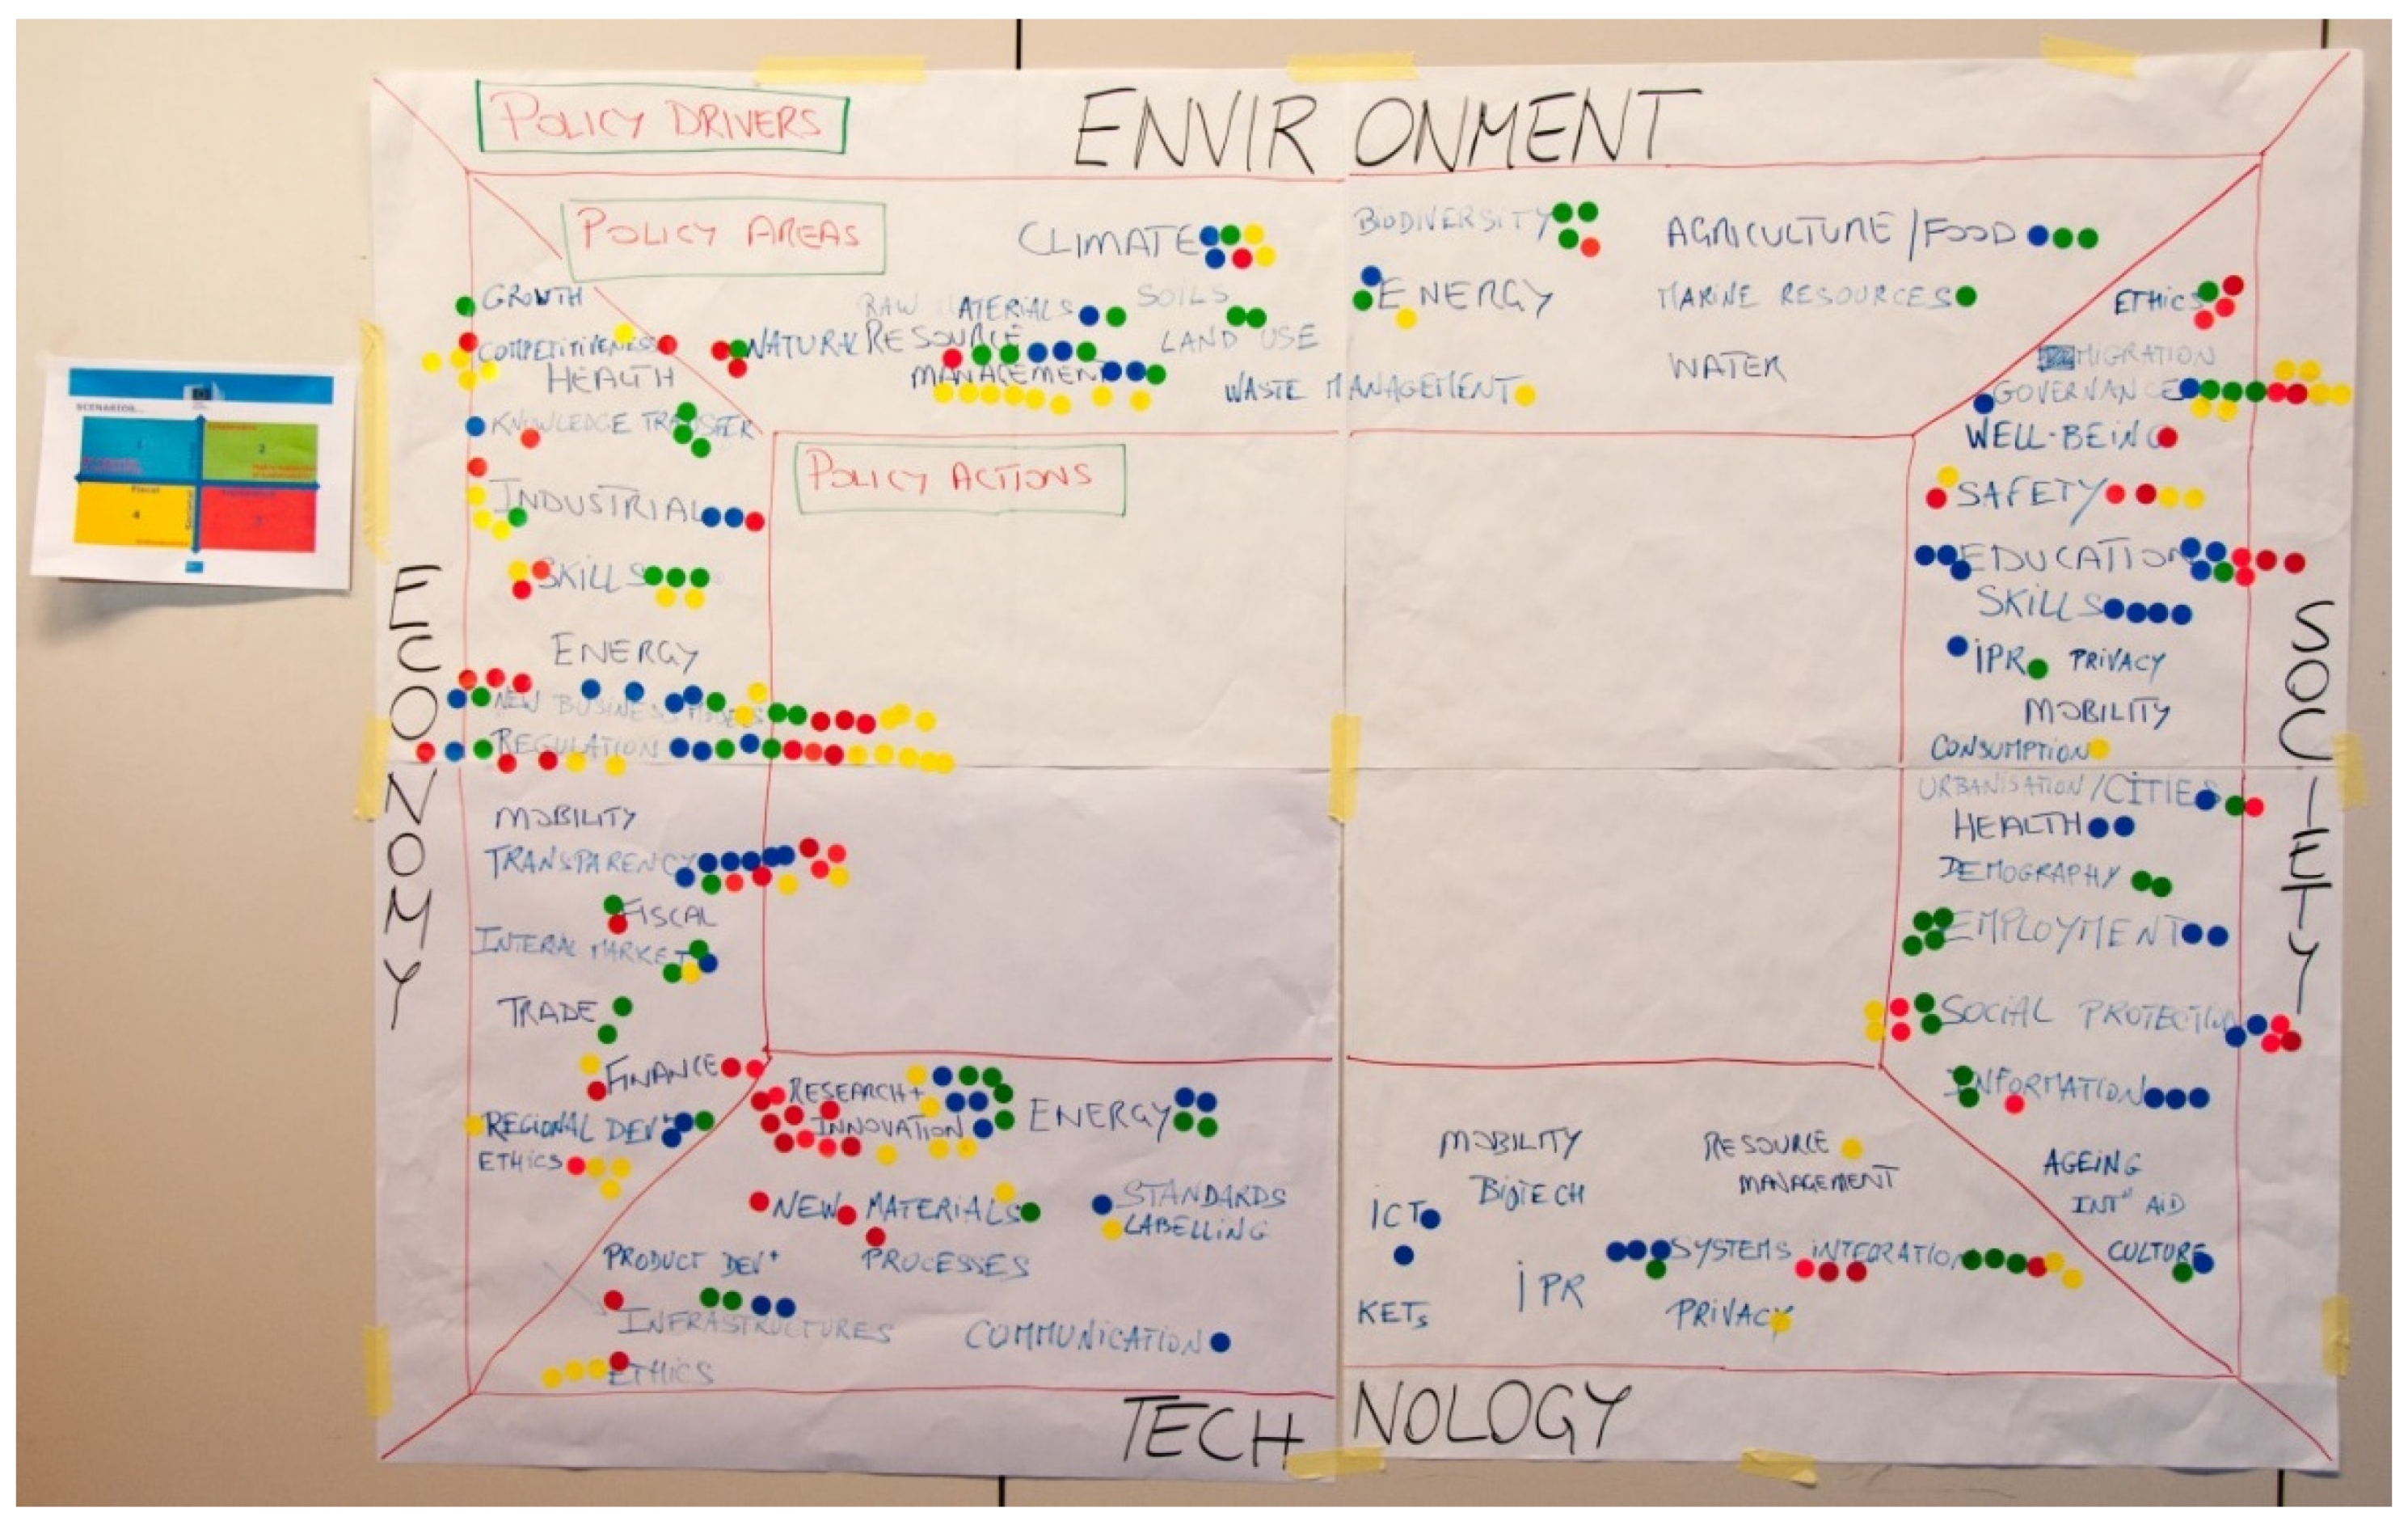 POLICY DRIVERS
ENVIRONMENT
POLICY AREAS
CLIMATE
BIODIVERSITY
AGRICULTURE / FOOD
RAW ATERIALS
SOILS
ENERGY
MARINE RESOURCES
NATURAL RESOURCE
MANAGEMENT
LAND USE
WATER
WASTE MANAGEMENT
ECONOMY
GROWTH
COMPETITIVENESS
HEALTH
KNOWLEDGE TRANSFER
INDUSTRIAL
SKILLS
ENERGY
NEW BUSINESS MODELS
REGULATION
MOBILITY
TRANSPARENCY
FISCAL
INTERNAL MARKET
TRADE
FINANCE
REGIONAL DEVT
ETHICS
POLICY ACTIONS
SOCIETY
ETHICS
MIGRATION
GOVERNANCE
WELL-BEING
SAFETY
EDUCATION
SKILLS
IPR PRIVACY
MOBILITY
CONSUMPTION
URBANISATION / CITIES
HEALTH
DEMOGRAPHY
EMPLOYMENT
SOCIAL PROTECTION
INFORMATION
AGEING
INT" AID
CULTURE
RESEARCH +
INNOVATION
ENERGY
NEW MATERIALS
PROCESSES
STANDARDS
LABELLING
PRODUCT DEVT
INFRASTRUCTURES
COMMUNICATION
ETHICS
MOBILITY
BIOTECH
RESOURCE
MANAGEMENT
ICT
SYSTEMS INTEGRATION
IPR
KETs
PRIVACY
TECHNOLOGY
SCENARIOS...
1
2
4
3